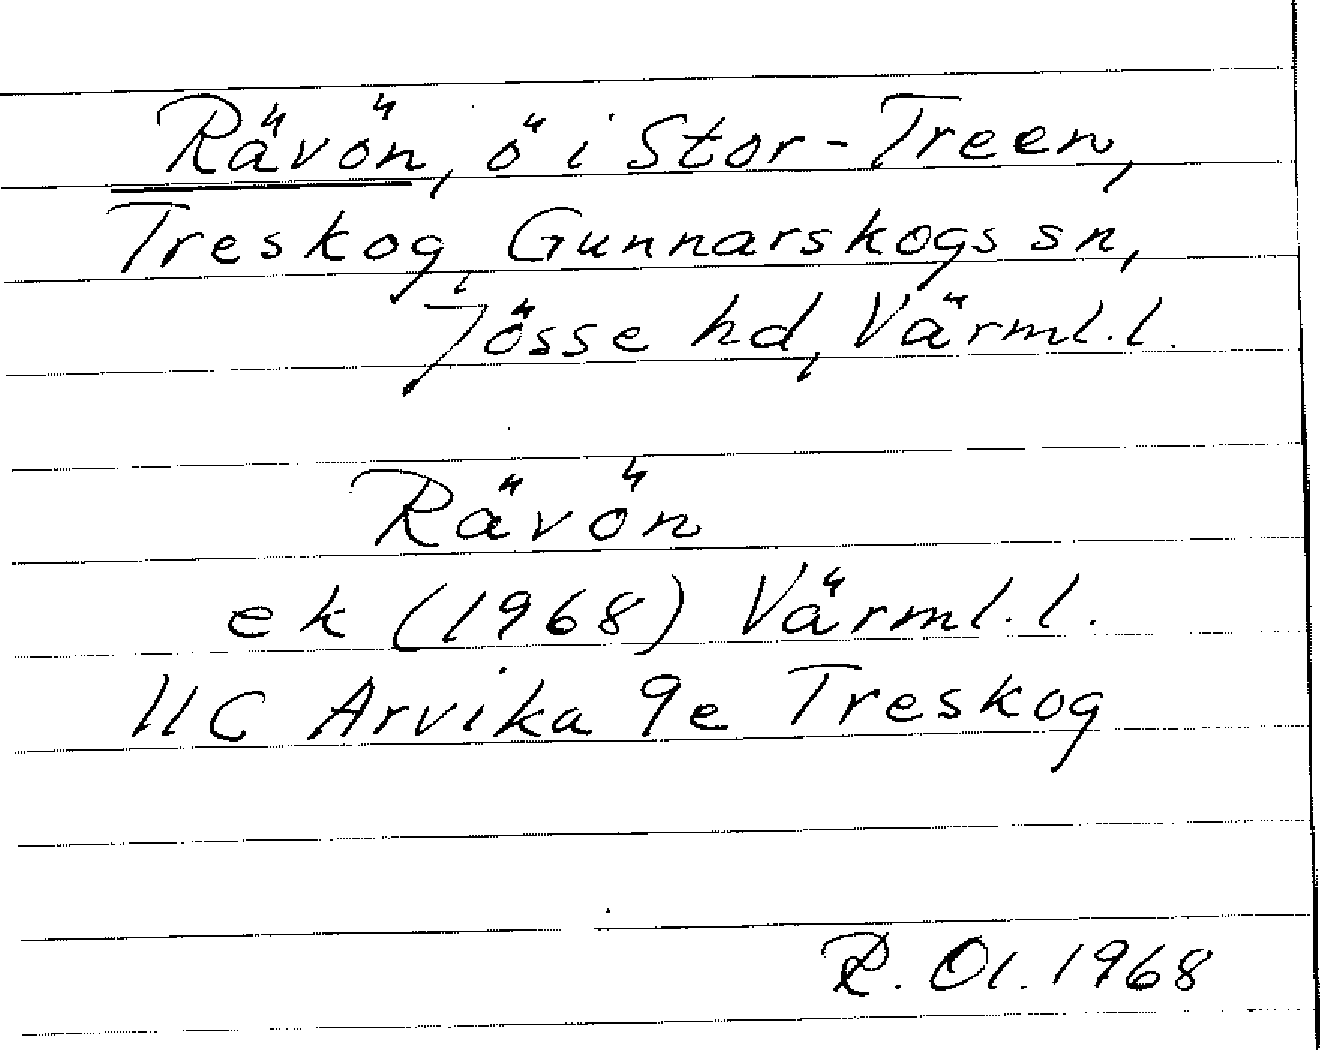 Rävön, ö i Stor-Treen,
Treskog, Gunnarskogs sn,
Jösse hd, Värml. l.
Rävön
ek (1968) Värml. l.
11C Arvika 9e Treskog
R. Ol. 1968